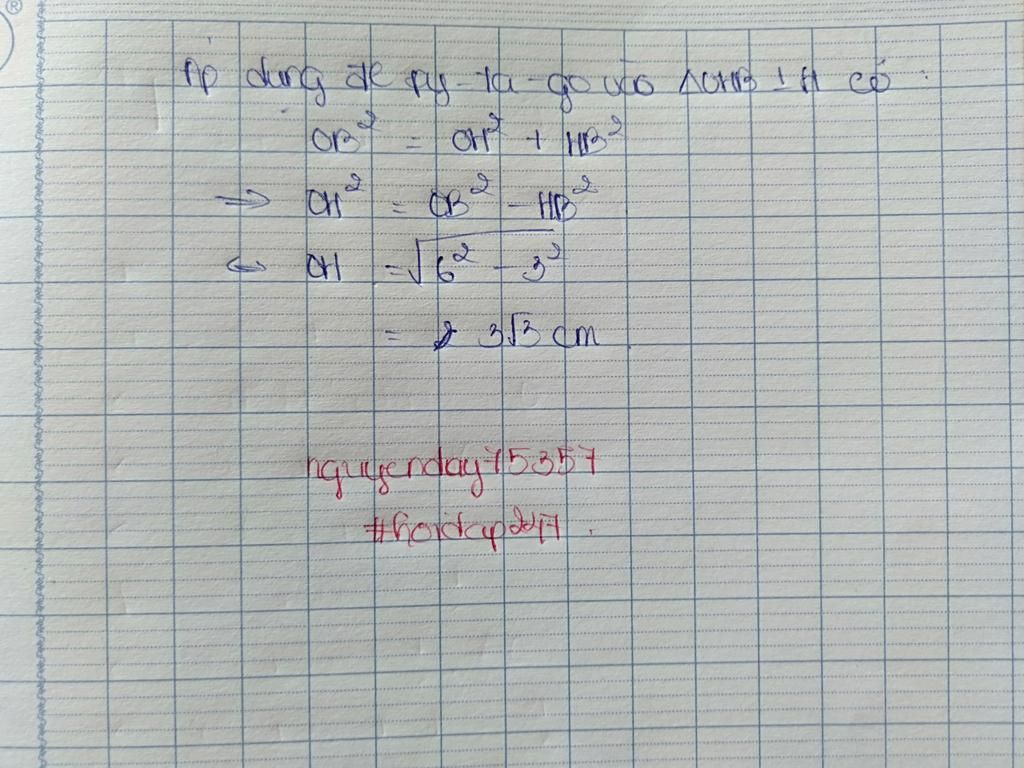 ®
Áp dụng đl py-ta-go vào △OHB ⊥ H có :
OB² = OH² + HB²
=> OH² = OB² - HB²
<=> OH = √6² - 3²
= 3√3 cm
nguyenday75357
#hoidap247.